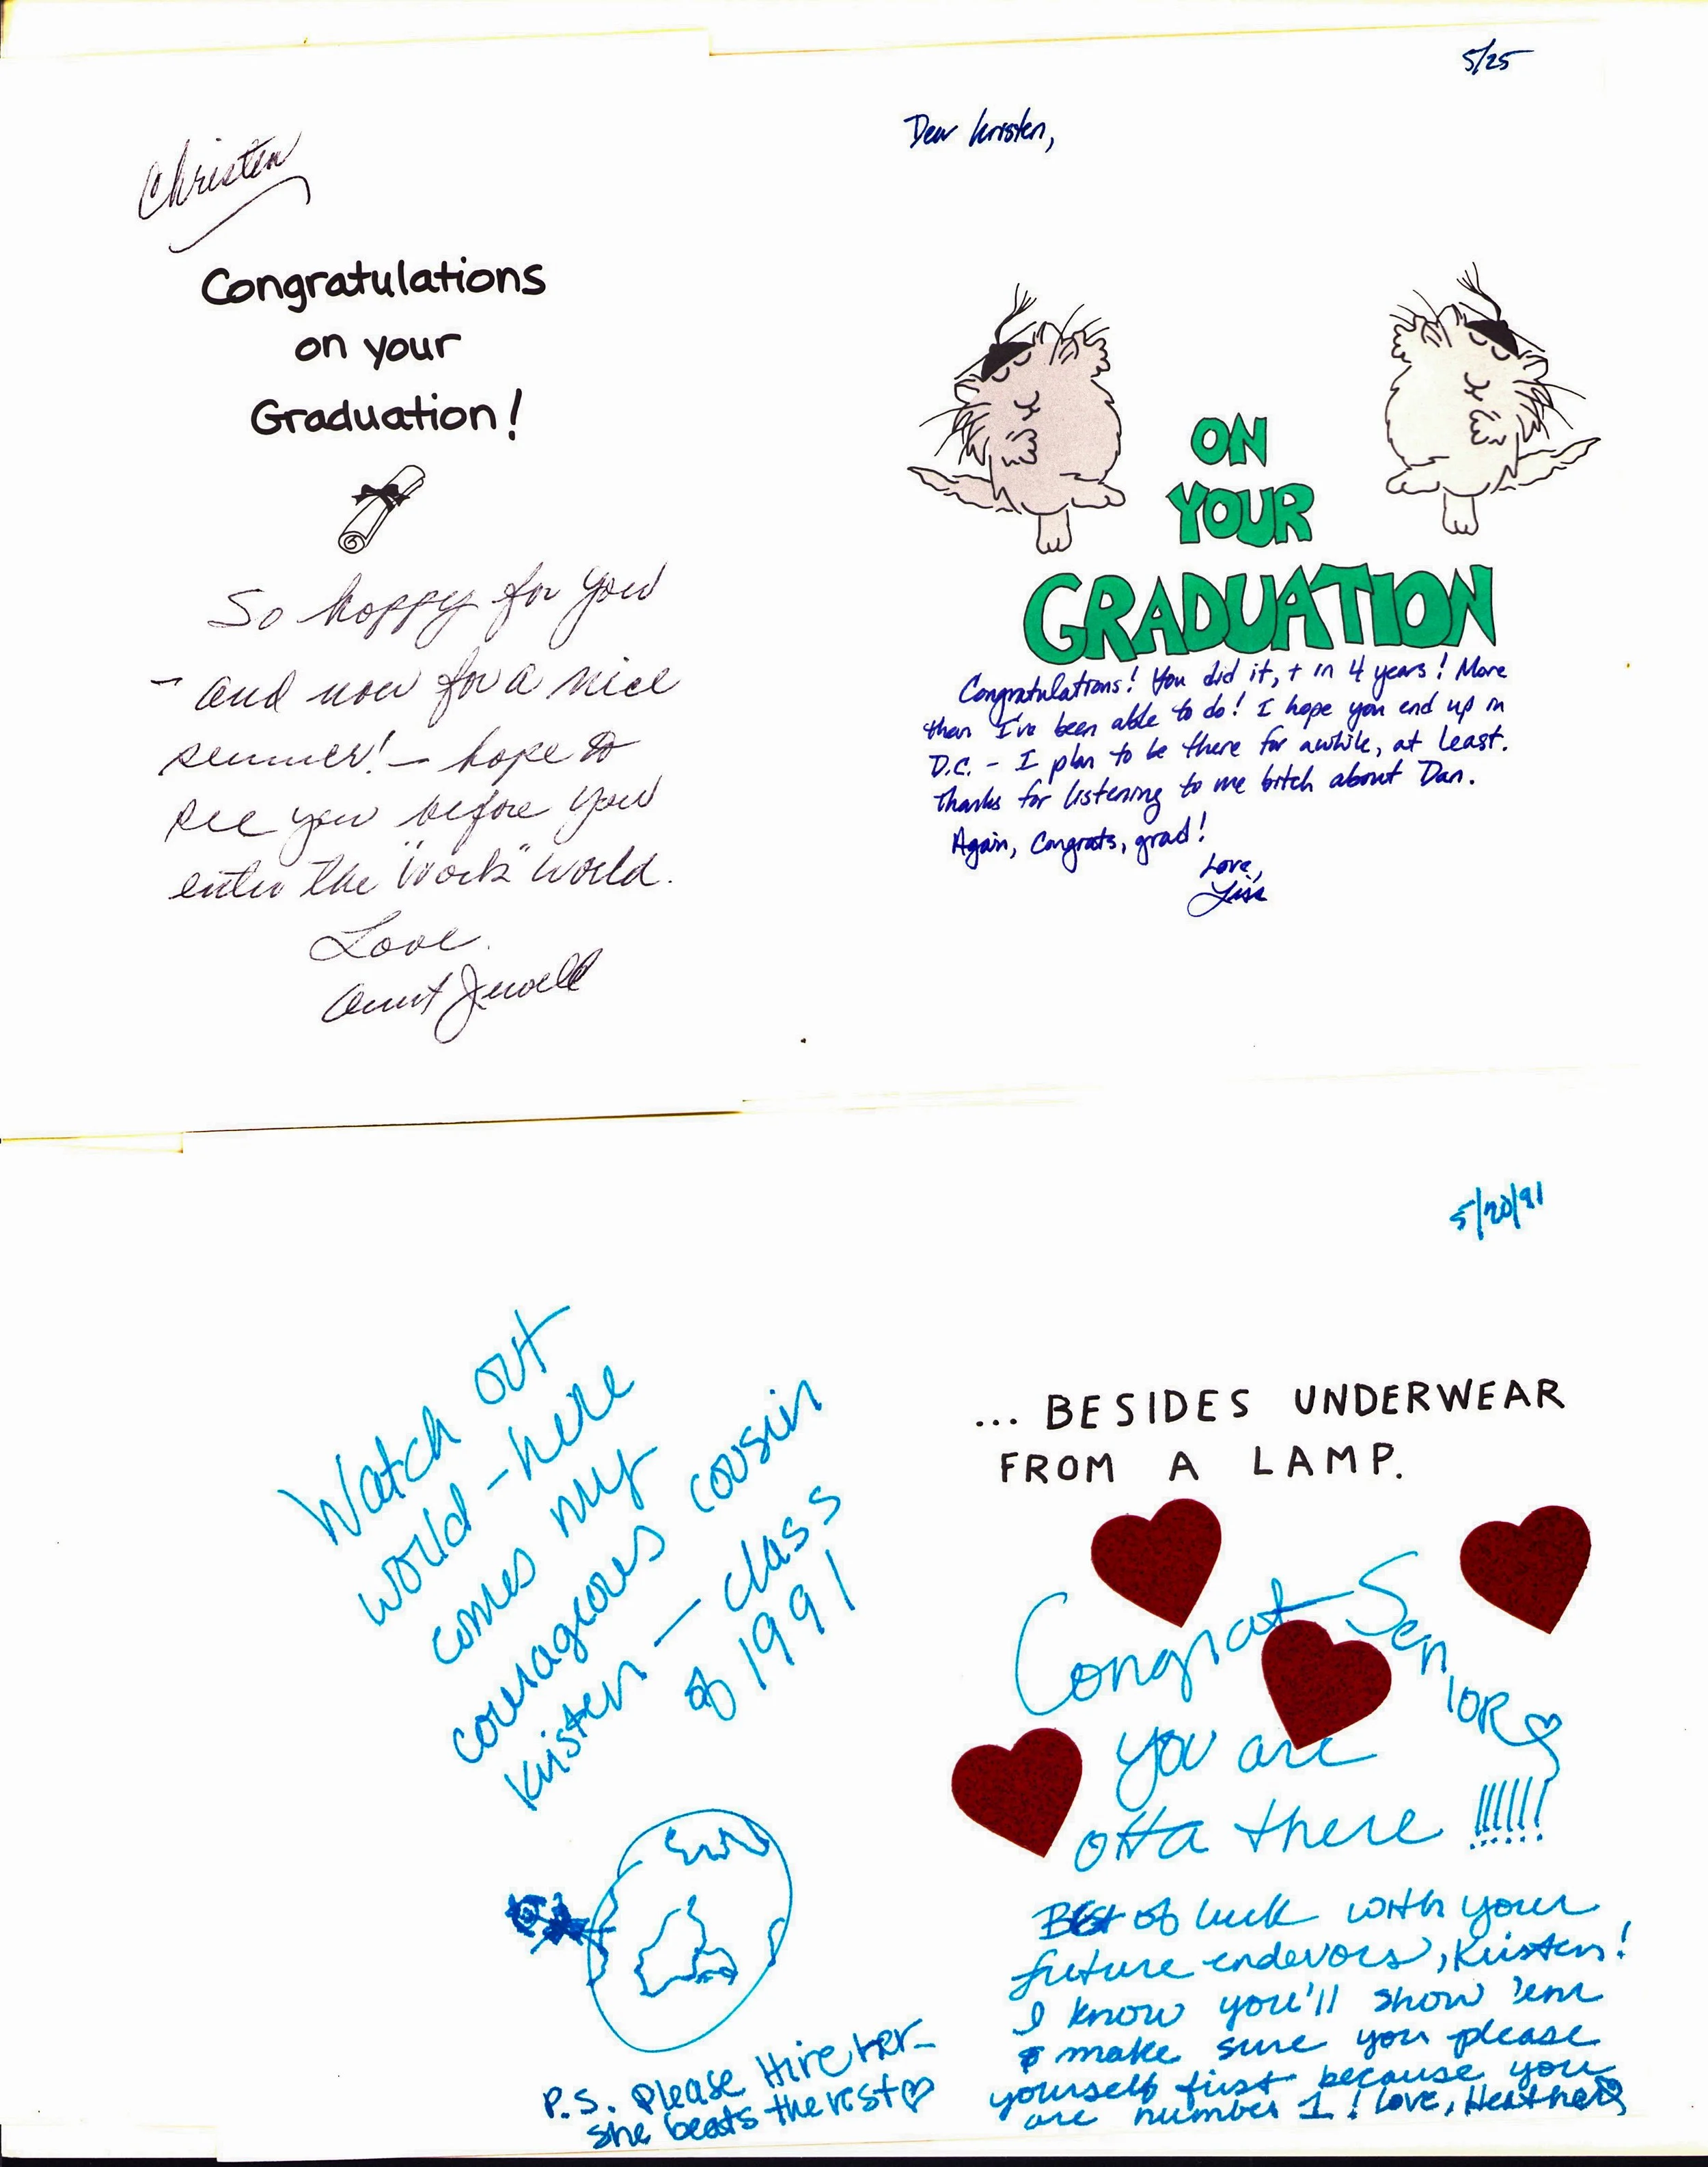 Christen
Congratulations
on your
Graduation!
So happy for you
- and now for a nice
summer! - hope to
see you before you
enter the "work" world.
Love.
Aunt Jewell
5/25
Dear Kristen,
ON
YOUR
GRADUATION
Congratulations! You did it, + in 4 years! More
than I've been able to do! I hope you end up in
D.C. - I plan to be there for awhile, at least.
Thanks for listening to me bitch about Dan.
Again, Congrats, grad!
Love,
Lisa
Watch out
world - here
comes my
courageous cousin
Kristen - class
of 1991
P.S. Please Hire her -
she beats the rest ♡
5/20/91
... BESIDES UNDERWEAR
FROM A LAMP.
Congrat Senior ♡
you are
otta there !!!!!!
Best of luck with your
future endevors, Kristen!
I know you'll show 'em
& make sure you please
yourself first because you
are number 1! Love, Heather